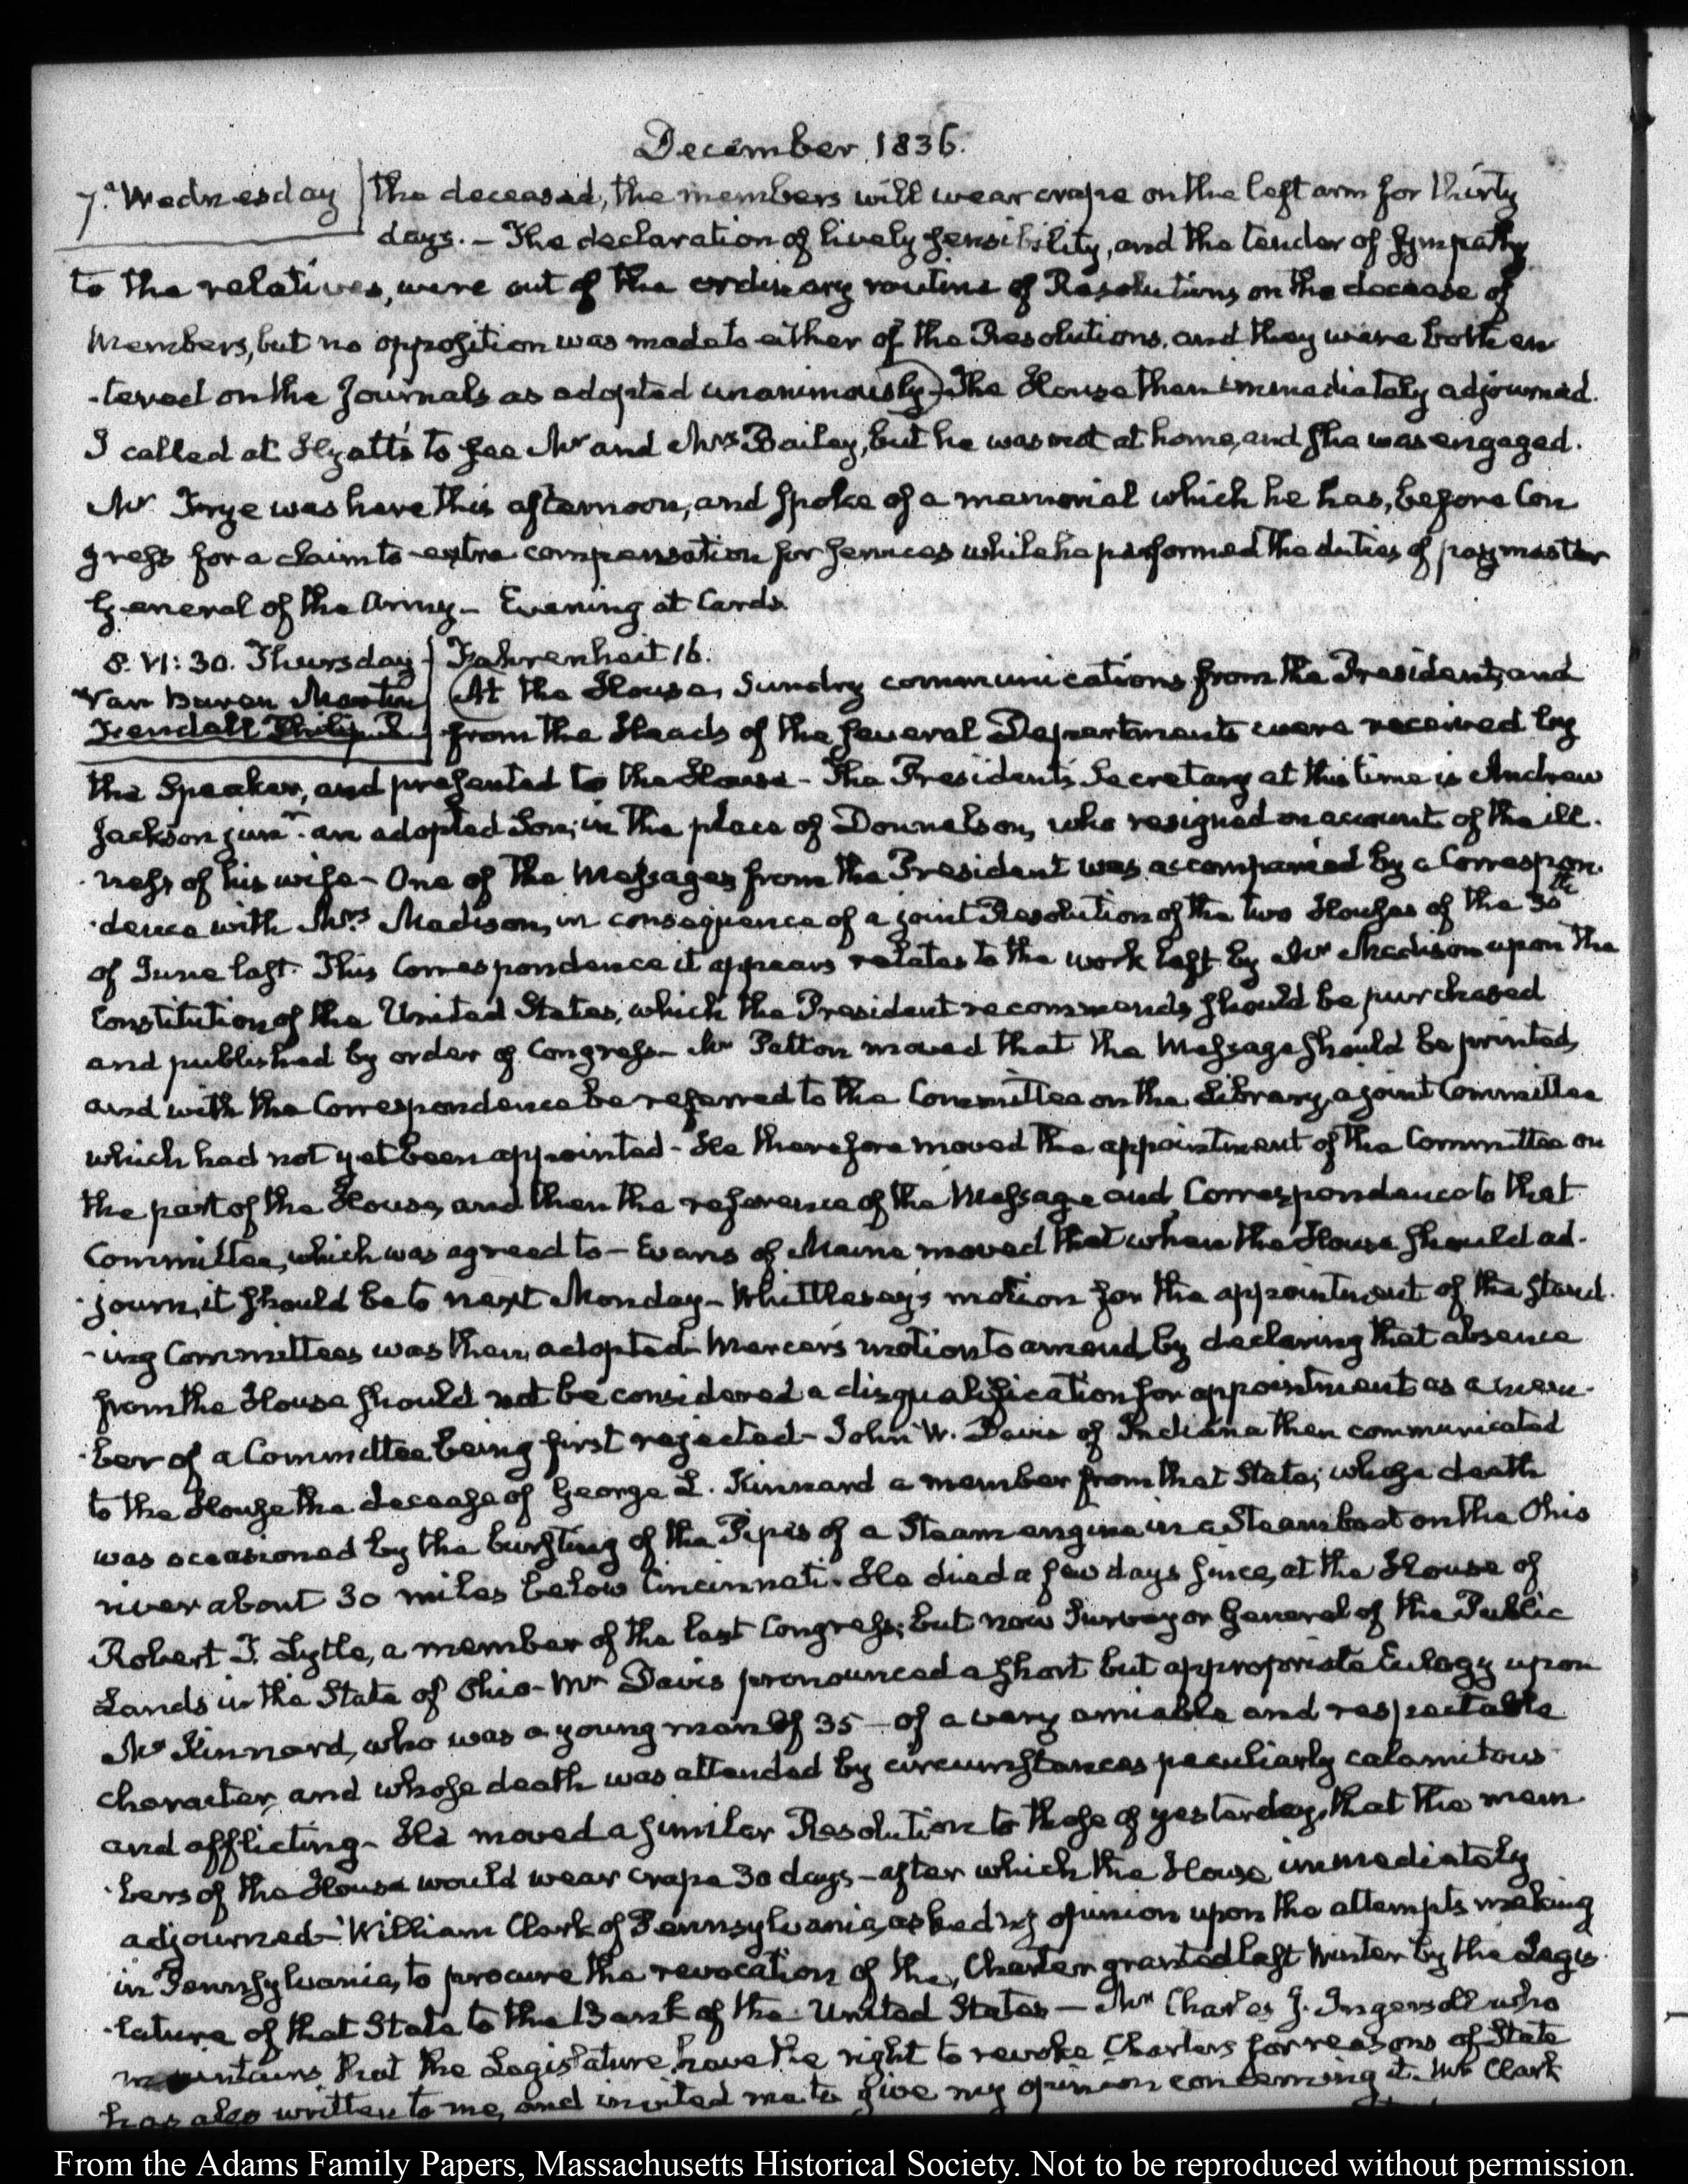 December 1836.
7. Wednesday the deceased, the members will wear crape on the left arm for thirty
days. – The declaration of lively sensibility, and the tender of sympathy
to the relatives, were out of the ordinary routine of Resolutions, on the decease of
Members, but no opposition was made to either of the Resolutions, and they were both en
-tered on the Journals as adopted unanimously – The House then immediately adjourned.
I called at Hyatt's to see Mr and Mrs Bailey, but he was not at home, and she was engaged.
Mr Frye was here this afternoon, and spoke of a memorial which he has, before Con
gress for a claim to extra compensation for services while he performed the duties of paymaster
General of the Army – Evening at Cards.
8. VI: 30. Thursday Fahrenheit 16.
Van Buren Martin At the House, Sundry communications from the President, and
Fendall Philip R from the Heads of the several Departments were received by
the Speaker, and presented to the House – The President's Secretary at this time is Andrew
Jackson junr. an adopted Son; in the place of Donnelson, who resigned on account of the ill-
-ness of his wife – One of the Messages from the President was accompanied by a Correspon-
-dence with Mrs Madison, in consequence of a joint Resolution of the two Houses of the 30th
of June last. This Correspondence it appears relates to the work left by Mr Madison upon the
Constitution of the United States, which the President recommends should be purchased
and published by order of Congress – Mr Patton moved that the Message should be printed,
and with the Correspondence be referred to the Committee on the Library, a joint Committee
which had not yet been appointed – He therefore moved the appointment of the Committee on
the part of the House, and then the reference of the Message and Correspondence to that
Committee, which was agreed to – Evans of Maine moved that when the House should ad-
-journ, it should be to next Monday – Whittlesey's motion for the appointment of the stand-
-ing Committees was then adopted – Mercer's motion to amend, by declaring that absence
from the House should not be considered a disqualification for appointment as a mem-
-ber of a Committee being first rejected – John W. Davis of Indiana then communicated
to the House the decease of George L. Kinnard a member from that State; whose death
was occasioned by the bursting of the Pipes of a Steam engine in a Steamboat on the Ohio
river about 30 miles below Cincinnati. He died a few days since, at the House of
Robert T. Lytle, a member of the last Congress; but now Surveyor General of the Public
Lands in the State of Ohio – Mr Davis pronounced a short but appropriate Eulogy upon
Mr Kinnard, who was a young man of 35 – of a very amiable and respectable
character, and whose death was attended by circumstances peculiarly calamitous
and afflicting – He moved a similar Resolution to those of yesterday, that the mem-
-bers of the House would wear crape 30 days – after which the House immediately
adjourned – William Clark of Pennsylvania, asked my opinion upon the attempts making
in Pennsylvania, to procure the revocation of the Charter granted last Winter by the Legis-
-lature of that State to the Bank of the United States – Mr Charles J. Ingersoll who
maintains that the Legislature have the right to revoke Charters for reasons of State
has also written to me, and invited me to give my opinion concerning it. Mr Clark
From the Adams Family Papers, Massachusetts Historical Society. Not to be reproduced without permission.